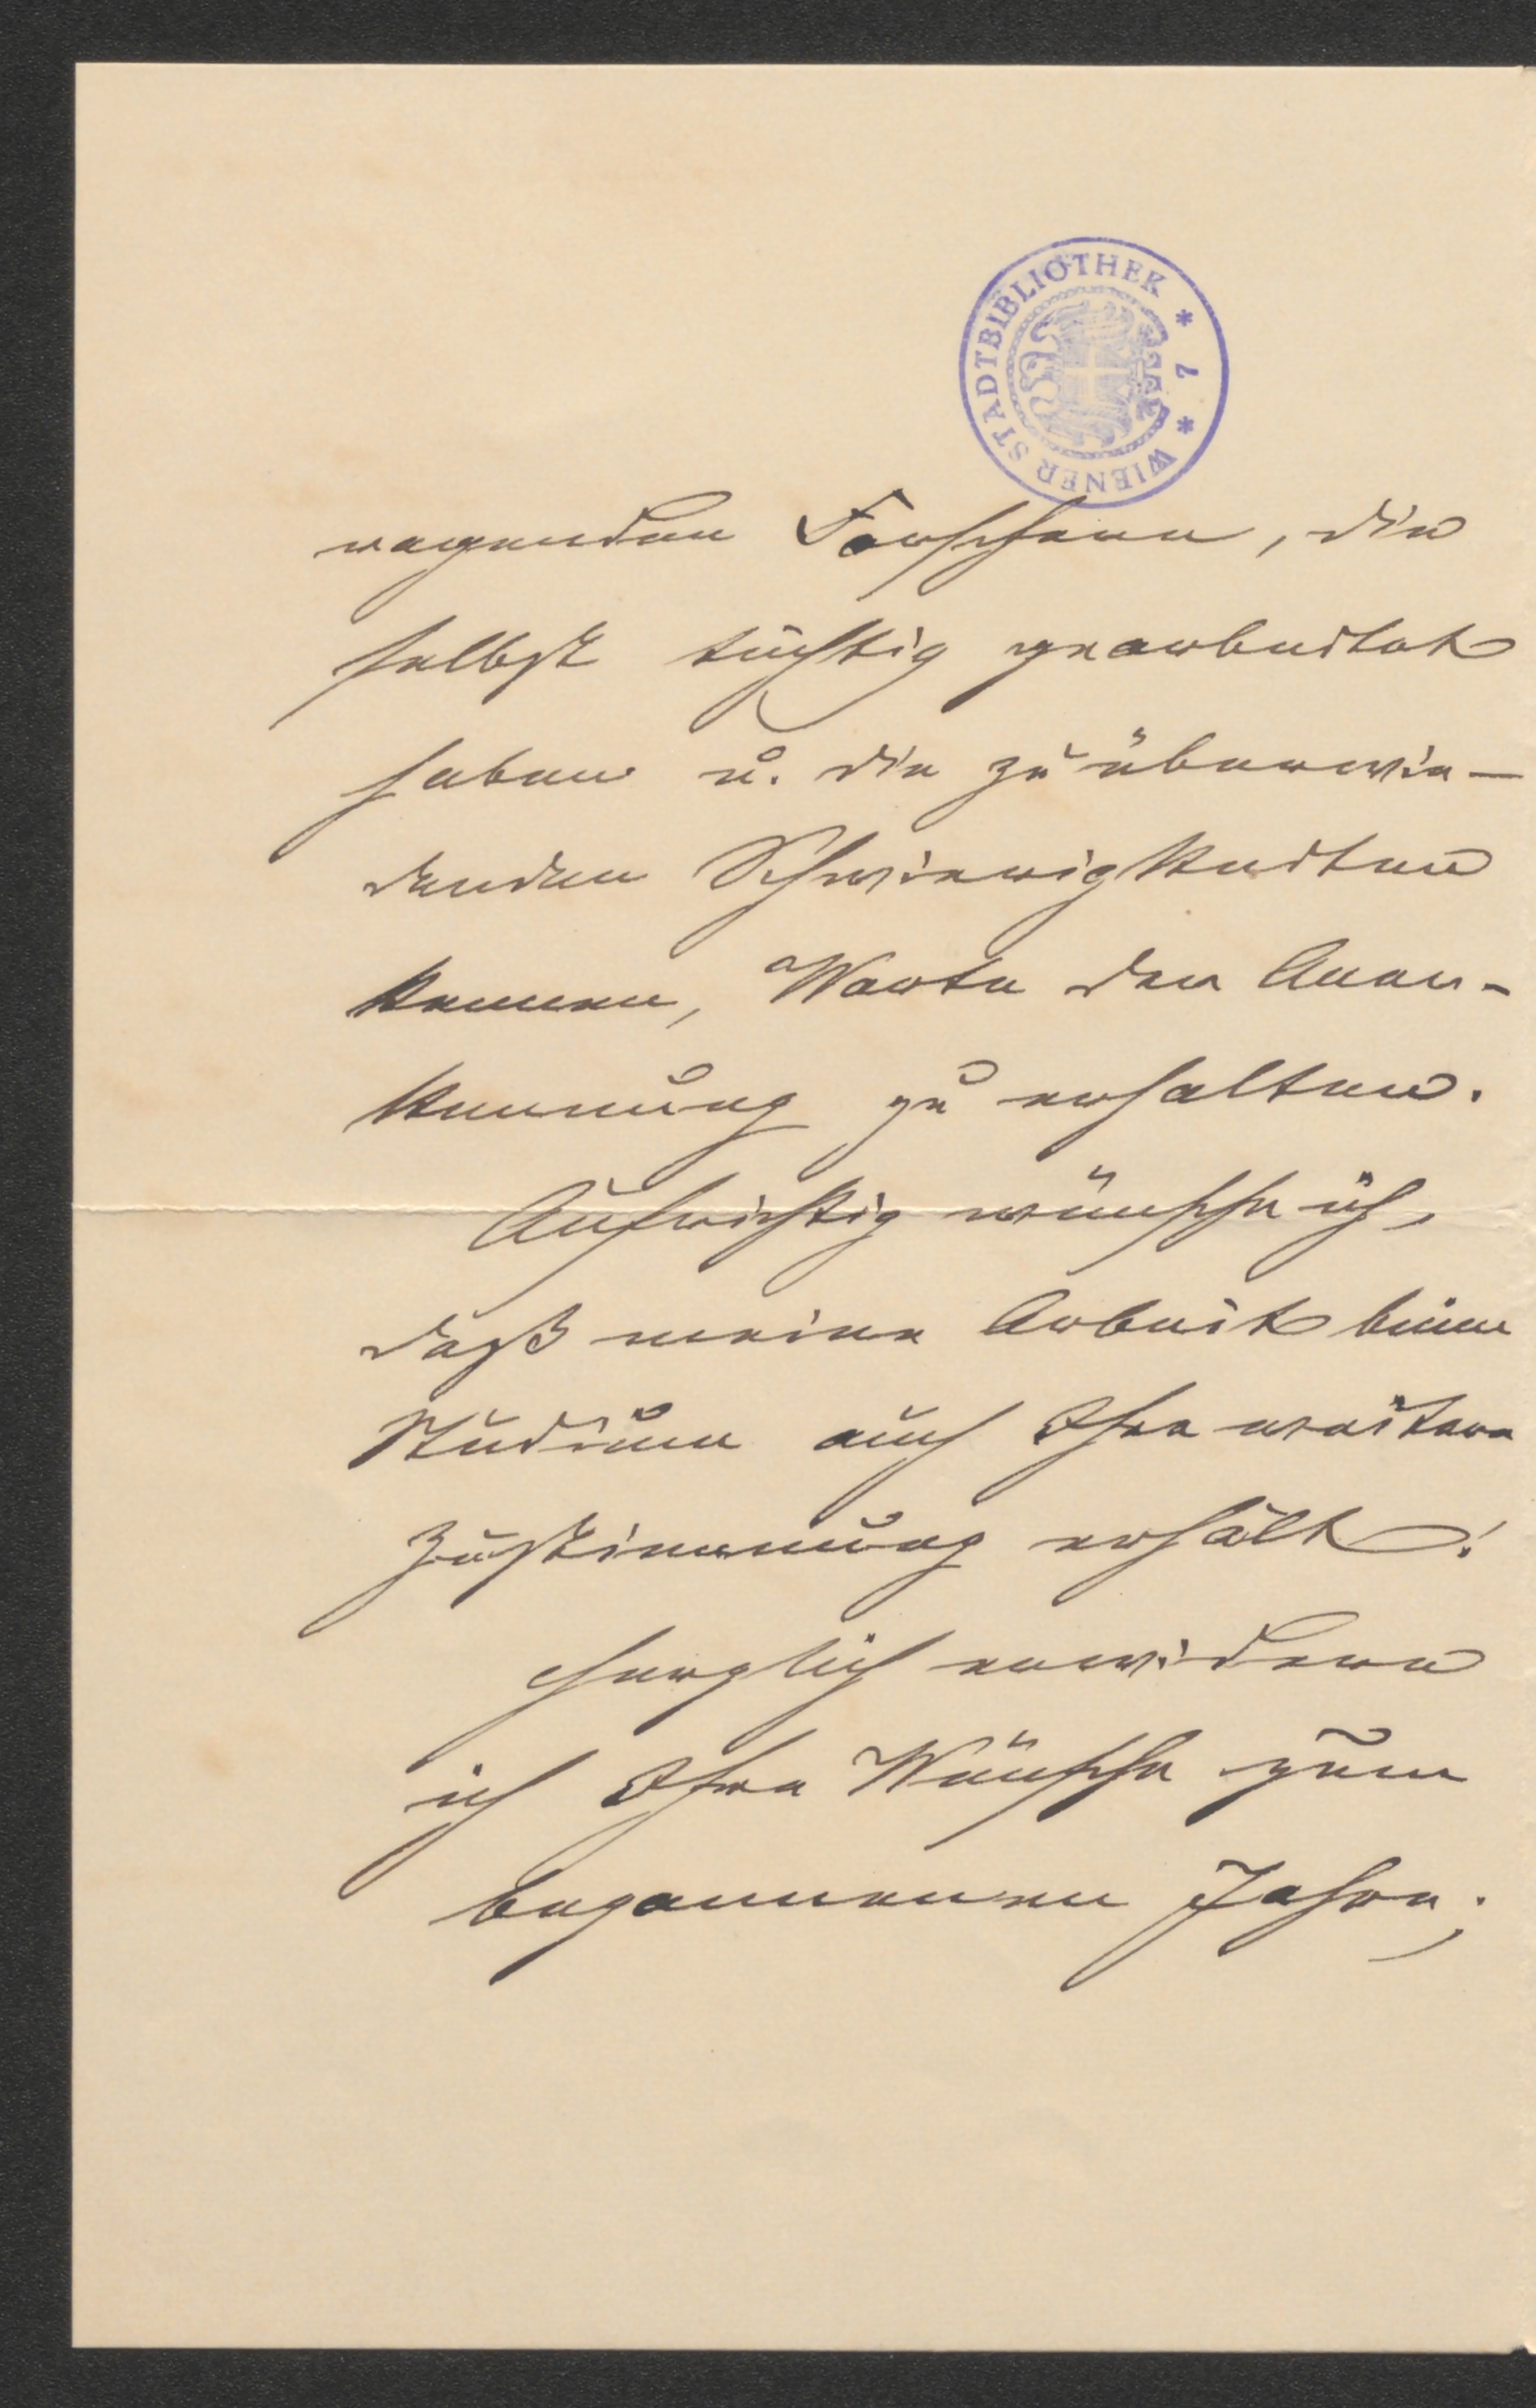 WIENER STADTBIBLIOTHEK * 7 *
ragenden Forschern, die
selbst tüchtig gearbeitet
haben u. die zu überwin-
denden Schwierigkeiten
kennen, Worte der Aner-
kennung zu erhalten.
Aufrichtig wünsche ich,
daß meine Arbeit beim
Studium auch Ihre weitere
Zustimmung erhält!
Herzlich erwidere
ich Ihre Wünsche zum
begonnenen Jahre;